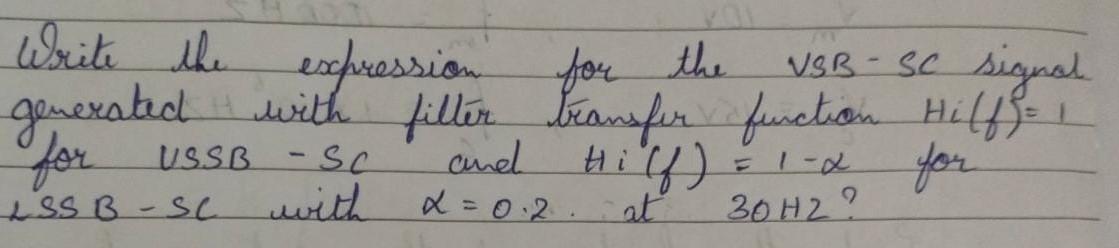 Write the expression for the VSB - SC signal
generated with filter transfer function Hi(f)= 1
for USSB - SC and Hi(f) = 1-α for
LSSB - SC with α = 0.2. at 30HZ?